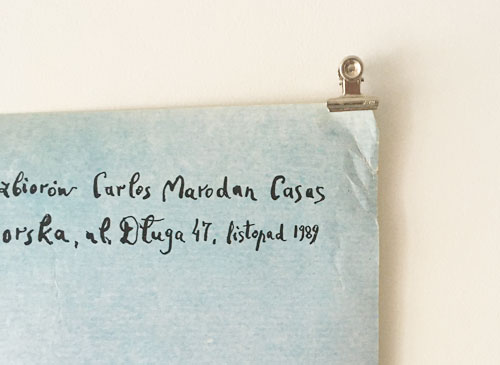 zbiorów Carlos Marodan Casas
orska, ul. Długa 47, listopad 1989